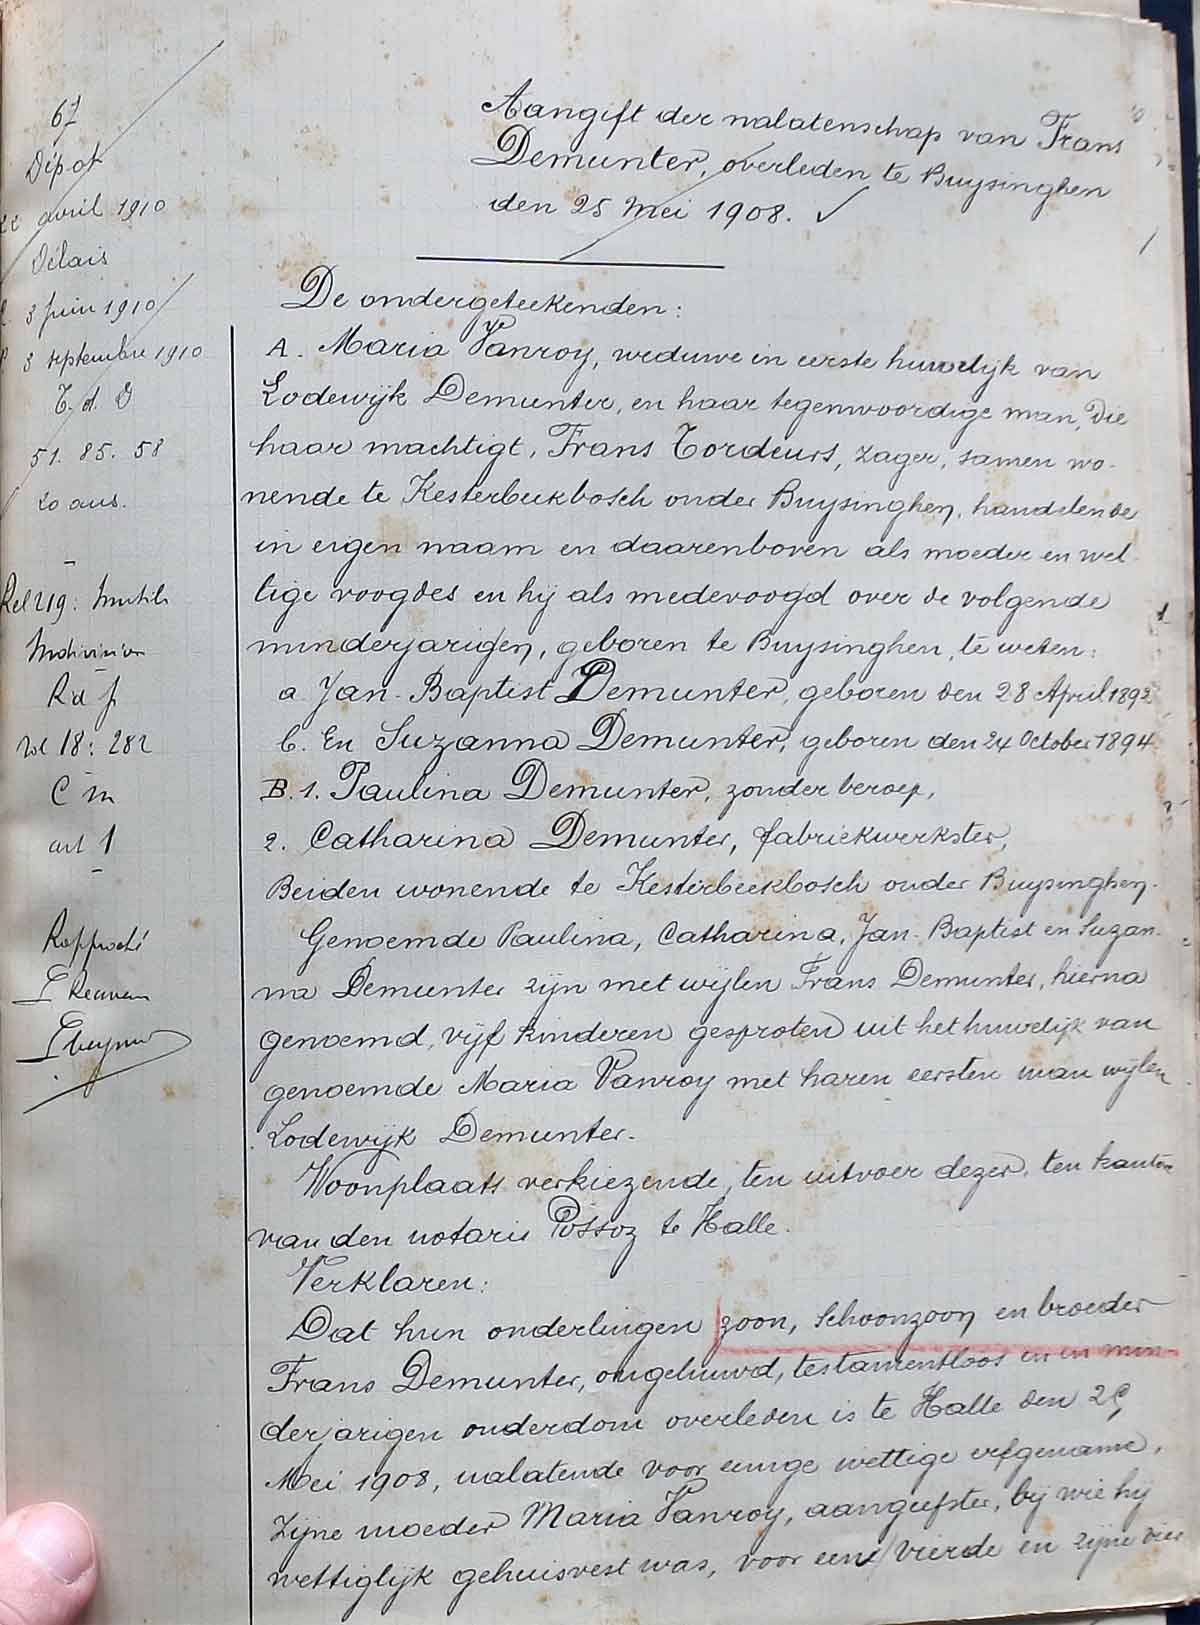 67
Dépot
avril 1910
Délais
3 Juin 1910
3 septembre 1910
T. d. D
51. 85. 58
20 ans.
Rel 219:
Indivision
R d f
vol 18: 282
C m
art 1
Aangift der nalatenschap van Frans
Demunter, overleden te Buysinghen
den 25 Mei 1908. ✓
De ondergeteekenden:
A. Maria Vanroy, weduwe in eerste huwelijk van
Lodewijk Demunter, en haar tegenwoordige man, die
haar machtigt, Frans Tordeurs, zager, samen wo-
nende te Kesterbeekbosch onder Buysinghen, handelende
in eigen naam en daarenboven als moeder en wet-
tige voogdes en hij als medevoogd over de volgende
minderjarigen, geboren te Buysinghen, te weten:
a. Jan-Baptist Demunter, geboren den 28 April 1892
b. En Suzanna Demunter, geboren den 24 October 1894.
B. 1. Paulina Demunter, zonder beroep,
2. Catharina Demunter, fabriekwerkster,
Beiden wonende te Kesterbeekbosch onder Buysinghen.
Genoemde Paulina, Catharina, Jan-Baptist en Suzan-
na Demunter zijn met wijlen Frans Demunter, hierna
genoemd, vijf kinderen gesproten uit het huwelijk van
genoemde Maria Vanroy met haren eersten man wijlen
Lodewijk Demunter.
Woonplaats verkiezende, ten uitvoer dezer, ten kantore
van den notaris Possoz te Halle.
Verklaren:
Dat hun onderlingen zoon, schoonzoon en broeder
Frans Demunter, ongehuwd, testamentloos en in min-
derjarigen ouderdom overleden is te Halle den 25
Mei 1908, nalatende voor eenige wettige erfgename,
zijne moeder Maria Vanroy, aangeefster, bij wie hij
wettiglijk gehuisvest was, voor een vierde en zijne vier